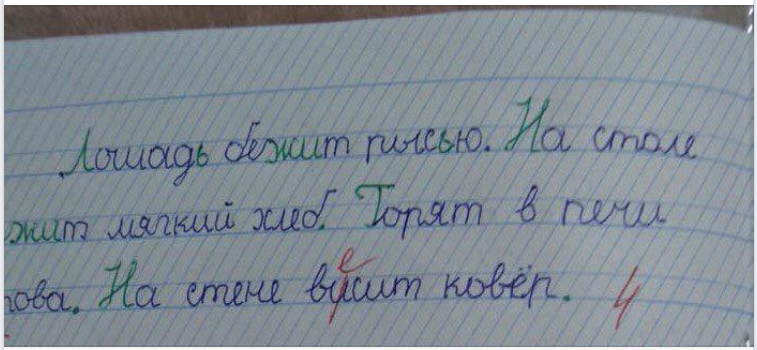 Лошадь бежит рысью. На столе
жит мягкий хлеб. Горят в печи
е
рова. На стене висит ковёр. 4